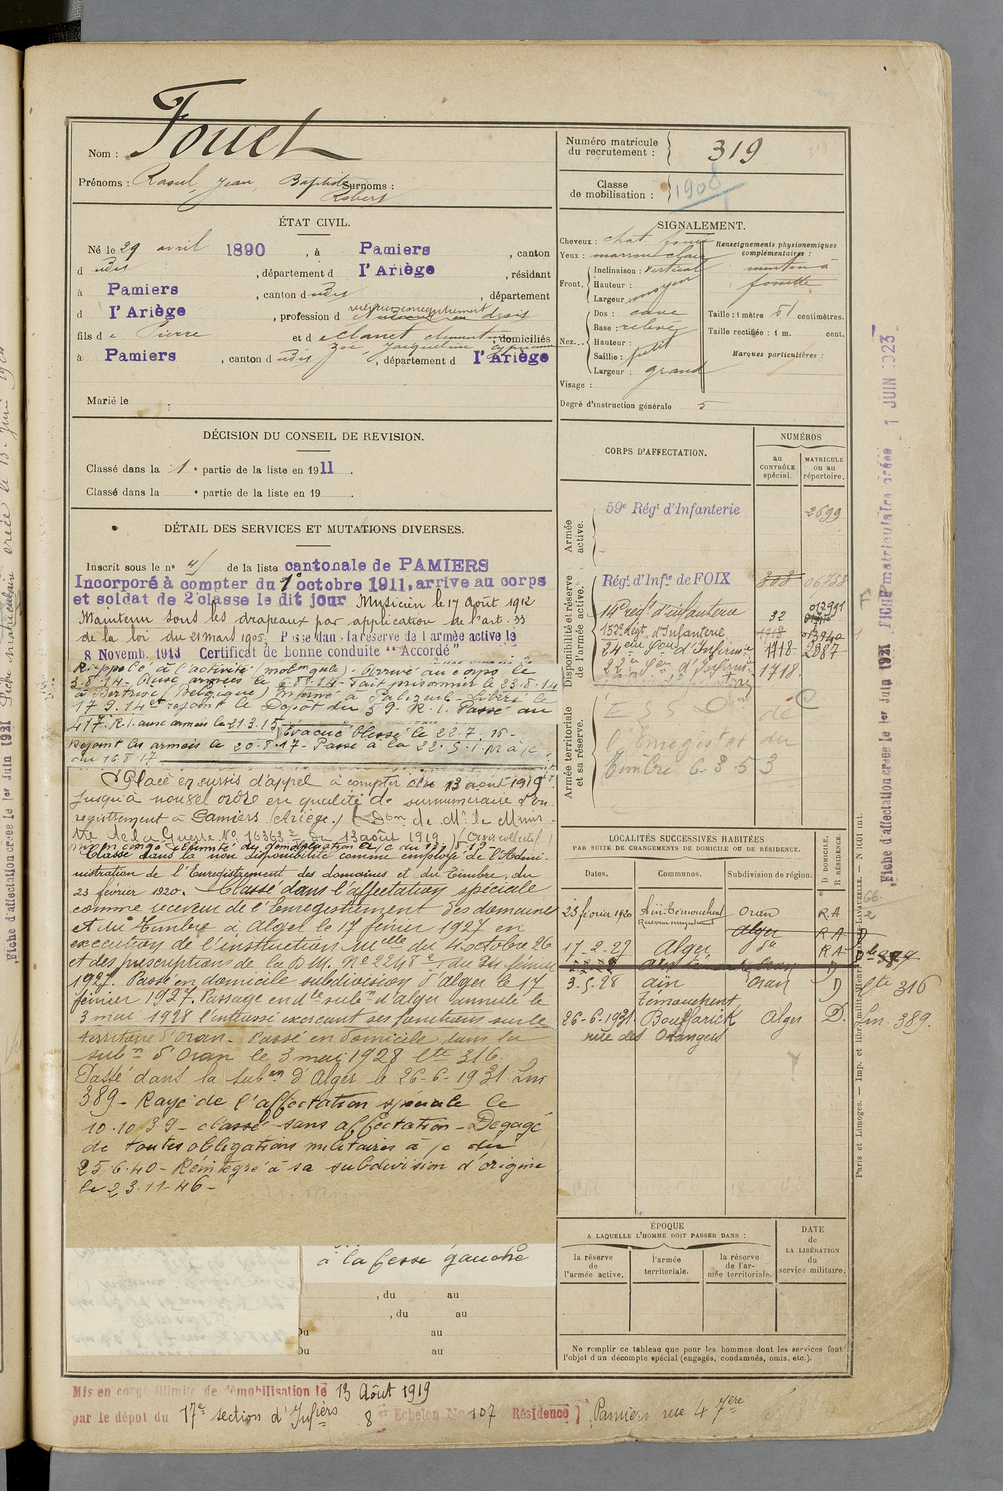 Nom : Fouet
Prénoms : Raoul Jean Baptiste Surnoms :
Robert
Numéro matricule
du recrutement : 319
Classe
de mobilisation : 1908
ÉTAT CIVIL.
Né le 29 avril 1890, à Pamiers, canton
d udis, département d l'Ariège, résidant
à Pamiers, canton d udis, département
d l'Ariège, profession d
fils d e Pierre et d e Clanet Clementine domiciliés
Zoé Jacquetine Cyprienne
à Pamiers, canton d udis, département d l'Ariège
Marié le
SIGNALEMENT.
Cheveux : chat. foncé
Yeux : marron clair
Front. Inclinaison : vertical
Hauteur :
Largeur : moyen
Nez... Dos : cave
Base : relevé
Hauteur :
Saillie : petit
Largeur : grand
Visage :
Degré d'instruction générale 5
Renseignements physionomiques
complémentaires :
menton à
fossette
Taille : 1 mètre 51 centimètres.
Taille rectifiée : 1 m. cent.
Marques particulières :
DÉCISION DU CONSEIL DE REVISION.
Classé dans la 1e partie de la liste en 1911.
Classé dans la e partie de la liste en 19 .
DÉTAIL DES SERVICES ET MUTATIONS DIVERSES.
Inscrit sous le no 4 de la liste cantonale de PAMIERS
Incorporé à compter du 1er octobre 1911, arrive au corps
et soldat de 2e classe le dit jour Musicien le 17 Août 1912
Maintenu sous les drapeaux par application de l'art. 33
de la loi du 21 mars 1905. Passé dans la réserve de l'armée active le
8 Novemb. 1913 Certificat de bonne conduite "Accordé"
Rappelé à l'activité (mobon gale) - Arrivé au corps le
3-8-14 - Aux armées le 6-8-14 - Fait prisonnier le 23-8-14
à Bertrix (Belgique) Interné à - Libéré le
17 9. 14 et rejoint le Dépôt du 59e R. I. Passé au
417e R. I. aux armées le 21 3. 15 Evacué Blessé le 22. 7. 16 -
Rejoint les armées le 20-8-17 - Passé à la 22. S. I. M à /c
du 16 8 17
Placé en sursis d'appel à compter du 13 août 1919
jusqu'à nouvel ordre en qualité de surnuméraire d'en-
registrement à Pamiers (Ariège) (Don de Mr le Minis-
tre de la Guerre No. 16363 du 13 août 1919) (Ordre collectif)
mis en congé illimité de démobilisation à/c du 13 8 19
Classé dans la non disponibilité comme employé de l'Admi-
nistration de l'Enregistrement des domaines et du Timbre, du
23 février 1920. Classé dans l'affectation spéciale
comme receveur de l'Enregistrement des domaines
et du Timbre à Alger le 17 février 1927 en
exécution de l'instruction du 4 octobre 26
et des prescriptions de la D.M. No 2248 du 24 février
1927. Passé en domicile subdivision d'Alger le 17
février 1927. Passage en dle subon d'Alger annulé le
3 mai 1928 l'intéressé exerçant ses fonctions sur le
territoire d'Oran. Passé en domicile dans la
subon d'Oran le 3 mai 1928 lte 316.
Passé dans la subon d'Alger le 26-6-1931 Lm
389 - Rayé de l'affectation spéciale le
10.10.39 - classé sans affectation - Dégagé
de toutes obligations militaires à /c du
25.6.40 - Réintégré à sa subdivision d'origine
le 23.11.46 -
à la fesse gauche
, du au
, du au
Du au
Du au
CORPS D'AFFECTATION.
NUMÉROS
au
CONTRÔLE
spécial.
MATRICULE
ou au
répertoire.
Armée
active.
59e Régt d'Infanterie 2699
Disponibilité et réserve
de l'armée active.
Régt d'Infie de FOIX
14e Régt d'infanterie 32
152e Régt d'Infanterie 1718
1718 2987
1718
Armée territoriale
et sa réserve.
E S S Don de
l'Enregist et du
Timbre 6. 3. 5 3
LOCALITÉS SUCCESSIVES HABITÉES
PAR SUITE DE CHANGEMENTS DE DOMICILE OU DE RÉSIDENCE.
Dates. Communes. Subdivision de région. D. DOMICILE. R. RÉSIDENCE.
23 février 1920 Aïn-Témouchent Oran R.A
Alger R A
17-2-27 Alger do R A
3-5-28 aïn Oran D lte 316
témouchent
26-6-1931 Bouffarick Alger D. Lm 389.
rue des Orangers
ÉPOQUE
A LAQUELLE L'HOMME DOIT PASSER DANS :
la réserve
de
l'armée active.
l'armée
territoriale.
la réserve
de l'ar-
mée territoriale.
DATE
de
LA LIBÉRATION
du
service militaire.
Ne remplir ce tableau que pour les hommes dont les services font
l'objet d'un décompte spécial (engagés, condamnés, omis, etc.).
Mis en congé illimité de démobilisation le 13 Août 1919
par le dépôt du 17e section d'Infiers 8e Echelon No 107 Résidence Pamiers rue
Fiche d'affectation créée le 1er Juin 1921
Fiche d'affectation créée le 1er Juin 1921
FICHE matriculaire créée 1 JUIN 1923
Paris et Limoges. — Imp. et libr. milit. Henri CHARLES-LAVAUZELLE. — N 1001 mt.